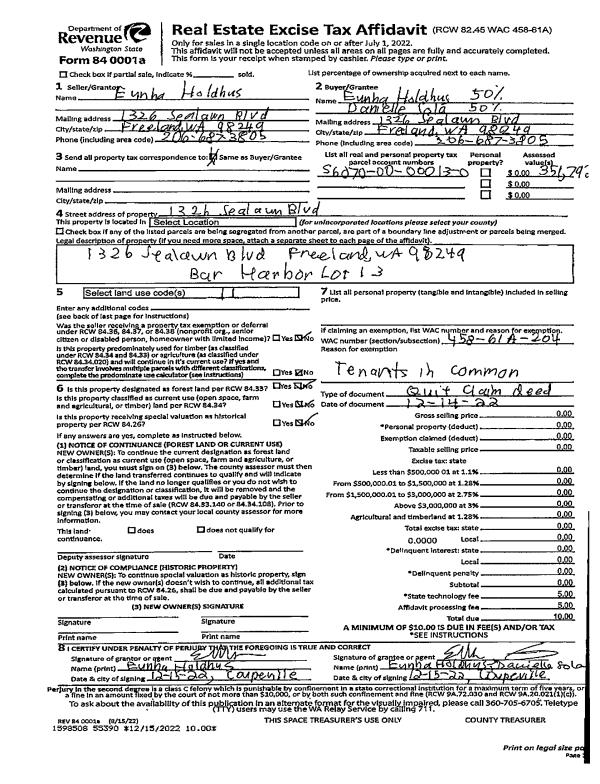 Department of
Revenue
Washington State
Form 84 0001a
Real Estate Excise Tax Affidavit (RCW 82.45 WAC 458-61A)
Only for sales in a single location code on or after July 1, 2022.
This affidavit will not be accepted unless all areas on all pages are fully and accurately completed.
This form is your receipt when stamped by cashier. Please type or print.
Check box if partial sale, indicate % sold.
List percentage of ownership acquired next to each name.
1 Seller/Grantor
Name Eunha Holdhus
Mailing address 1326 Sealawn Blvd
City/state/zip Freeland, WA 98249
Phone (including area code) 206-687-3805
2 Buyer/Grantee
Name Eunha Holdhus 50%
Danielle Sola 50%
Mailing address 1326 Sealawn Blvd
City/state/zip Freeland, WA 98249
Phone (including area code) 206-687-3805
3 Send all property tax correspondence to: Same as Buyer/Grantee
Name
Mailing address
City/state/zip
List all real and personal property tax parcel account numbers
Personal property?
Assessed value(s)
S6070-00-00013-0
$ 0.00
$ 0.00
$ 0.00
4 Street address of property 1326 Sealawn Blvd
This property is located in Select Location (for unincorporated locations please select your county)
Check box if any of the listed parcels are being segregated from another parcel, are part of a boundary line adjustment or parcels being merged.
Legal description of property (if you need more space, attach a separate sheet to each page of the affidavit).
1326 Sealawn Blvd Freeland, WA 98249
Bar Harbor Lot 13
5 Select land use code(s)
Enter any additional codes
(see back of last page for instructions)
Was the seller receiving a property tax exemption or deferral
under RCW 84.36, 84.37, or 84.38 (nonprofit org., senior
citizen or disabled person, homeowner with limited income)? Yes No
Is this property predominately used for timber (as classified
under RCW 84.34 and 84.33) or agriculture (as classified under
RCW 84.34.020) and will continue in it's current use? If yes and
the transfer involves multiple parcels with different classifications,
complete the predominate use calculator (see instructions) Yes No
6 Is this property designated as forest land per RCW 84.33? Yes No
Is this property classified as current use (open space, farm
and agricultural, or timber) land per RCW 84.34? Yes No
Is this property receiving special valuation as historical
property per RCW 84.26? Yes No
If any answers are yes, complete as instructed below.
(1) NOTICE OF CONTINUANCE (FOREST LAND OR CURRENT USE)
NEW OWNER(S): To continue the current designation as forest land
or classification as current use (open space, farm and agriculture, or
timber) land, you must sign on (3) below. The county assessor must then
determine if the land transferred continues to qualify and will indicate
by signing below. If the land no longer qualifies or you do not wish to
continue the designation or classification, it will be removed and the
compensating or additional taxes will be due and payable by the seller
or transferor at the time of sale (RCW 84.33.140 or 84.34.108). Prior to
signing (3) below, you may contact your local county assessor for more
information.
This land: does does not qualify for
continuance.
Deputy assessor signature Date
(2) NOTICE OF COMPLIANCE (HISTORIC PROPERTY)
NEW OWNER(S): To continue special valuation as historic property, sign
(3) below. If the new owner(s) doesn't wish to continue, all additional tax
calculated pursuant to RCW 84.26, shall be due and payable by the seller
or transferor at the time of sale.
(3) NEW OWNER(S) SIGNATURE
Signature Signature
Print name Print name
7 List all personal property (tangible and intangible) included in selling
price.
If claiming an exemption, list WAC number and reason for exemption.
WAC number (section/subsection) 458-61A-204
Reason for exemption
Tenants in common
Type of document Quit Claim deed
Date of document 12-14-22
Gross selling price 0.00
*Personal property (deduct) 0.00
Exemption claimed (deduct) 0.00
Taxable selling price 0.00
Excise tax: state
Less than $500,000.01 at 1.1% 0.00
From $500,000.01 to $1,500,000 at 1.28% 0.00
From $1,500,000.01 to $3,000,000 at 2.75% 0.00
Above $3,000,000 at 3% 0.00
Agricultural and timberland at 1.28% 0.00
Total excise tax: state 0.00
0.0000 Local 0.00
*Delinquent interest: state 0.00
Local 0.00
*Delinquent penalty 0.00
Subtotal 0.00
*State technology fee 5.00
Affidavit processing fee 5.00
Total due 10.00
A MINIMUM OF $10.00 IS DUE IN FEE(S) AND/OR TAX
*SEE INSTRUCTIONS
8 I CERTIFY UNDER PENALTY OF PERJURY THAT THE FOREGOING IS TRUE AND CORRECT
Signature of grantor or agent
Name (print) Eunha Holdhus
Date & city of signing 12-15-22, Coupeville
Signature of grantee or agent
Name (print) Eunha Holdhus Danielle Sola
Date & city of signing 12-15-22, Coupeville
Perjury in the second degree is a class C felony which is punishable by confinement in a state correctional institution for a maximum term of five years, or by
a fine in an amount fixed by the court of not more than $10,000, or by both such confinement and fine (RCW 9A.72.030 and RCW 9A.20.021(1)(c)).
To ask about the availability of this publication in an alternate format for the visually impaired, please call 360-705-6705. Teletype
(TTY) users may use the WA Relay Service by calling 711.
REV 84 0001a (9/15/22)
THIS SPACE TREASURER'S USE ONLY
COUNTY TREASURER
1598508 55390 *12/15/2022 10.00*
Print on legal size pa
Page